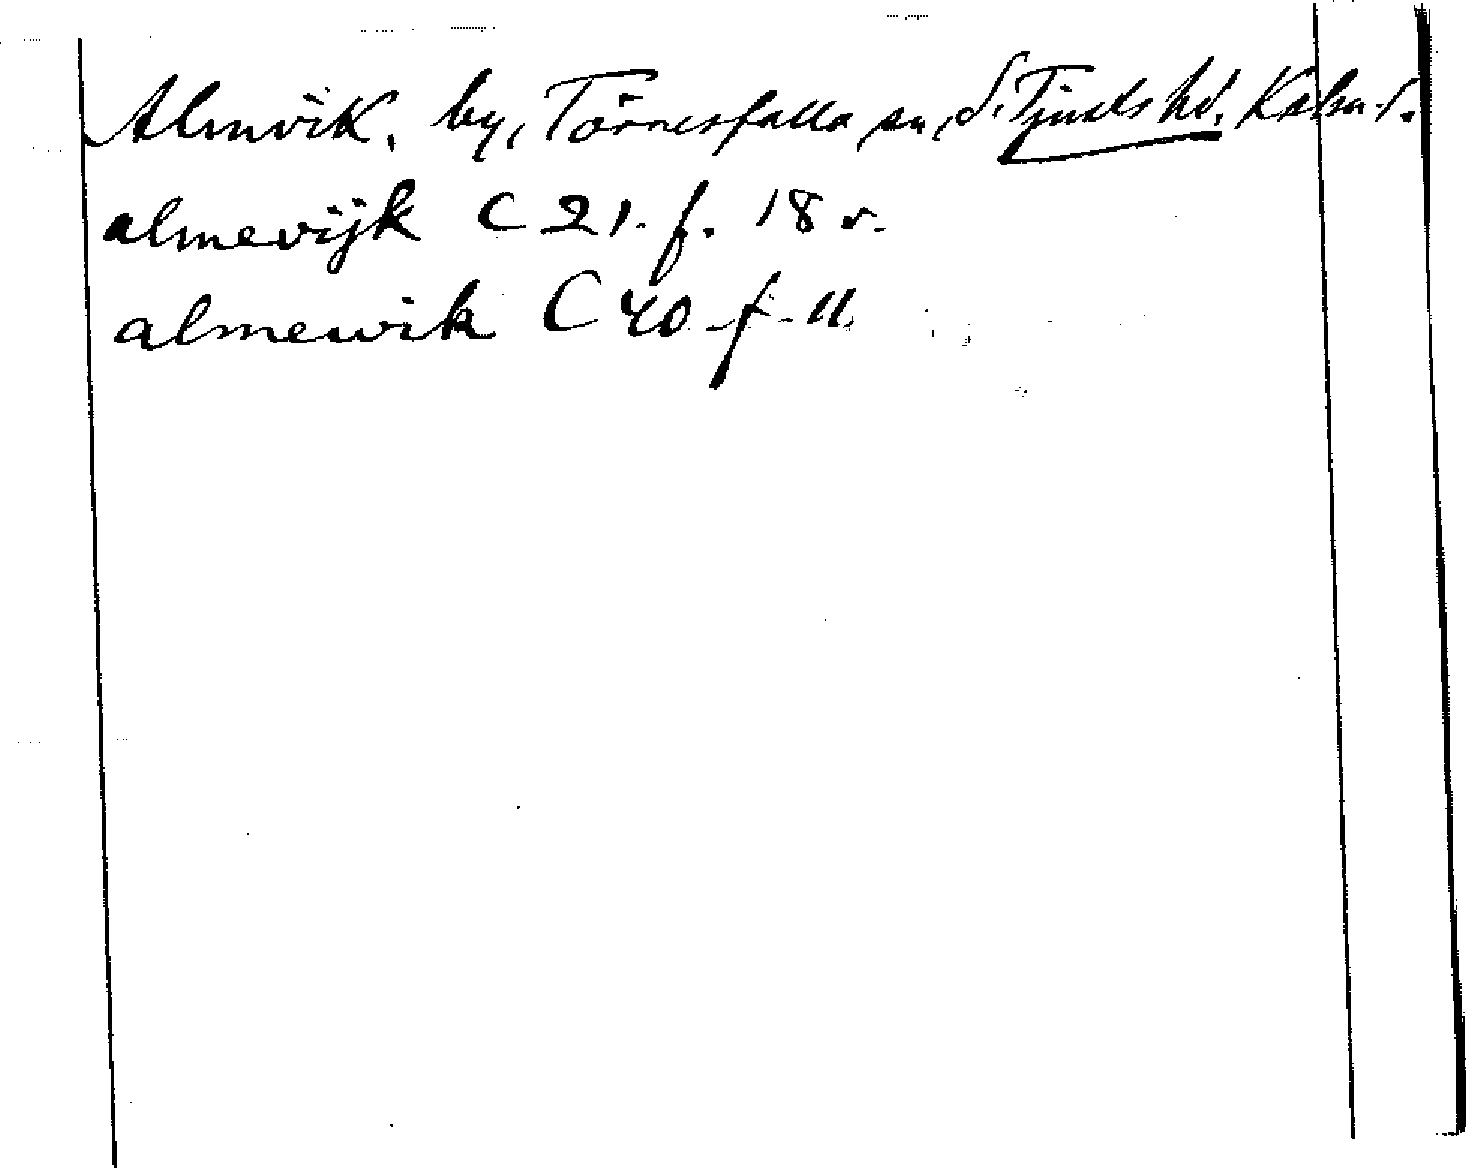 Almvik, by, Törnesfalla sn, S. Tjusts hd. Kalm. l.
almevijk C 21. f. 18 v.
almewik C 40 f 11.